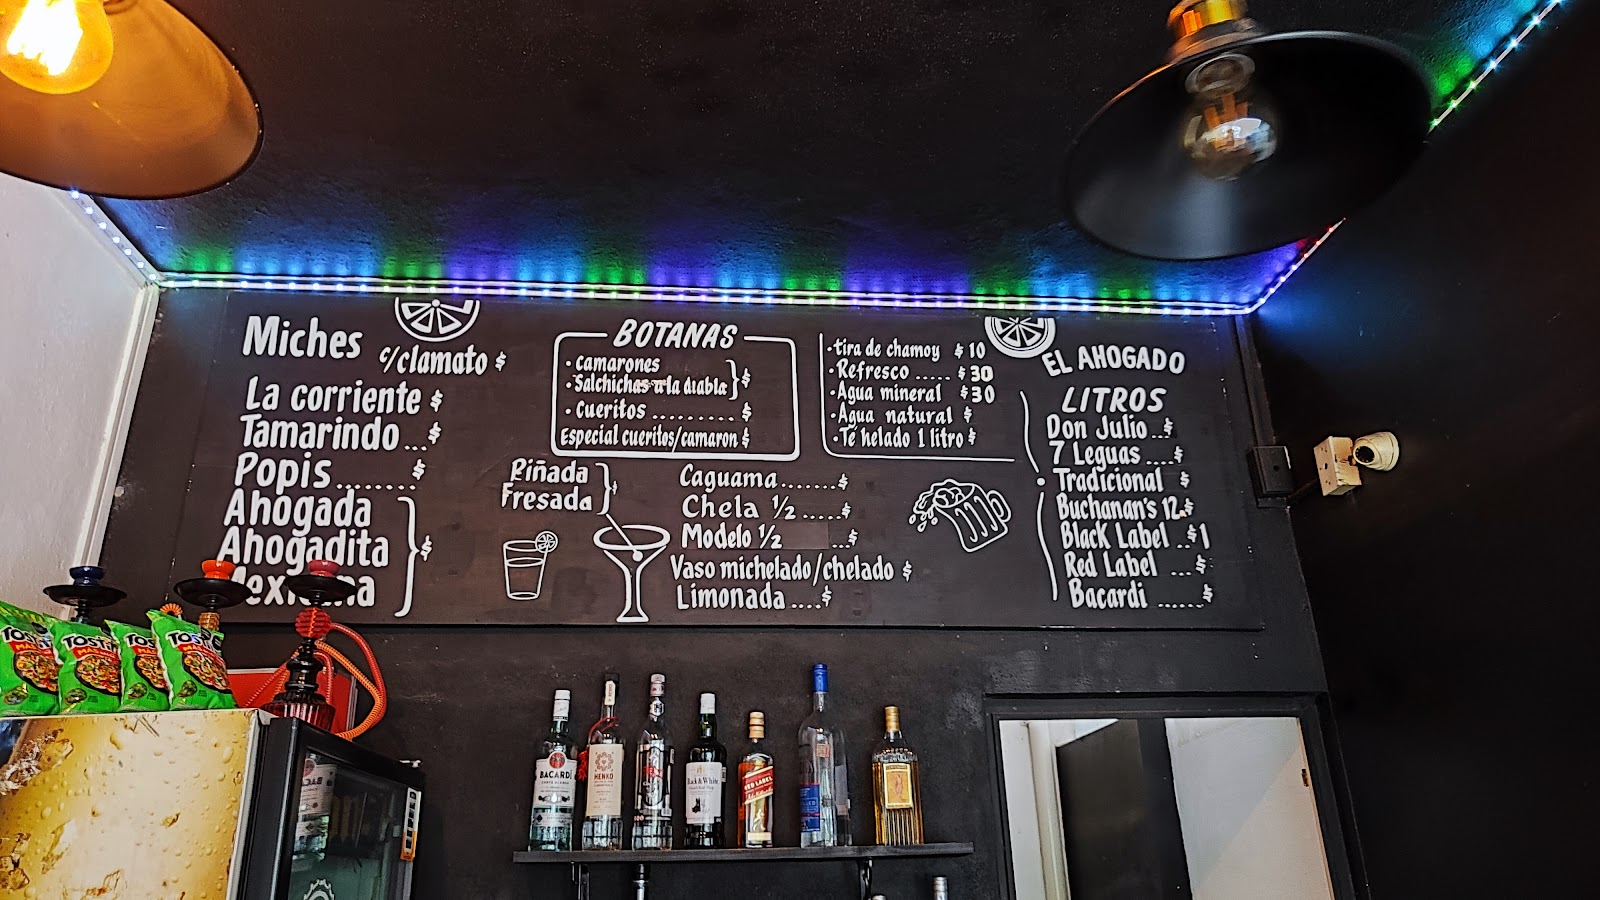 Miches
c/clamato $
La corriente $
Tamarindo...$
Popis........$
Ahogada
Ahogadita
Mexicana
$
BOTANAS
• camarones
• Salchichas a la diabla
$
• Cueritos ......... $
Especial cueritos/camaron $
Piñada
Fresada
$
Caguama.......$
Chela 1/2 .....$
Modelo 1/2 ...$
Vaso michelado/chelado $
Limonada ....$
• tira de chamoy $ 10
• Refresco ..... $ 30
• Agua mineral $30
• Agua natural $
• Té helado 1 litro $
EL AHOGADO
LITROS
Don Julio..$
7 Leguas ....$
• Tradicional $
Buchanan's 12.$
Black Label ..$1
Red Label ...$
Bacardi ......$
TOSTI
TOSTI
TOSTI
TOSTI
BACARDÍ
HENKO
Black & White
RED LABEL